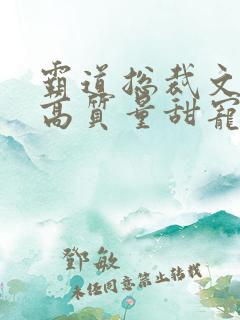 霸道总裁文
高质量甜宠
鄧敏
未经同意禁止转载